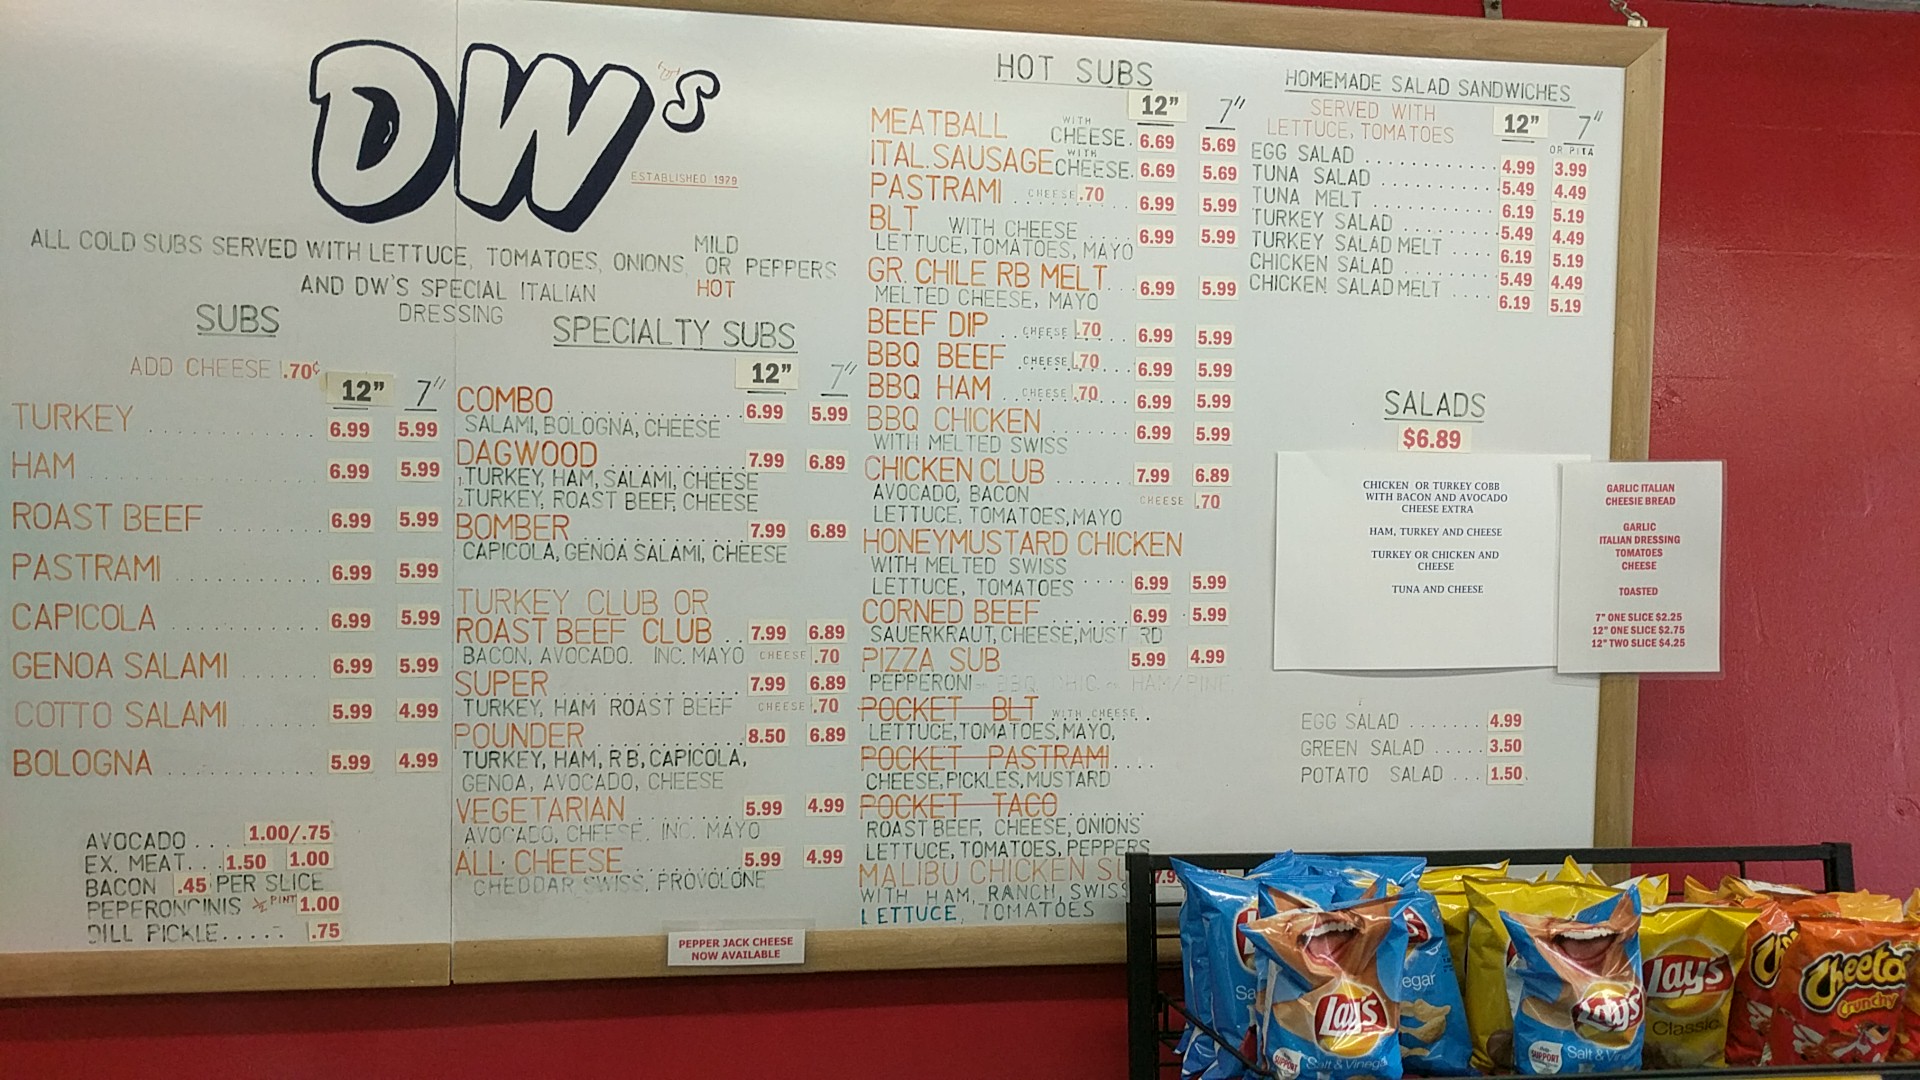 DW's
ESTABLISHED 1979
ALL COLD SUBS SERVED WITH LETTUCE, TOMATOES, ONIONS, MILD OR HOT PEPPERS
AND DW'S SPECIAL ITALIAN
DRESSING
SUBS
ADD CHEESE .70¢
12" 7"
TURKEY 6.99 5.99
HAM 6.99 5.99
ROAST BEEF 6.99 5.99
PASTRAMI 6.99 5.99
CAPICOLA 6.99 5.99
GENOA SALAMI 6.99 5.99
COTTO SALAMI 5.99 4.99
BOLOGNA 5.99 4.99
AVOCADO... 1.00/.75
EX. MEAT... 1.50 1.00
BACON .45 PER SLICE
PEPERONCINIS 1/2 PINT 1.00
DILL PICKLE..... .75
SPECIALTY SUBS
12" 7"
COMBO 6.99 5.99
SALAMI, BOLOGNA, CHEESE
DAGWOOD 7.99 6.89
1. TURKEY, HAM, SALAMI, CHEESE
2. TURKEY, ROAST BEEF, CHEESE
BOMBER 7.99 6.89
CAPICOLA, GENOA SALAMI, CHEESE
TURKEY CLUB OR
ROAST BEEF CLUB .. 7.99 6.89
BACON, AVOCADO. INC. MAYO CHEESE .70
SUPER 7.99 6.89
TURKEY, HAM ROAST BEEF CHEESE .70
POUNDER 8.50 6.89
TURKEY, HAM, R B, CAPICOLA,
GENOA, AVOCADO, CHEESE
VEGETARIAN 5.99 4.99
AVOCADO, CHEESE. INC. MAYO
ALL CHEESE 5.99 4.99
CHEDDAR, SWISS, PROVOLONE
PEPPER JACK CHEESE
NOW AVAILABLE
HOT SUBS
12" 7"
MEATBALL WITH CHEESE. 6.69 5.69
ITAL. SAUSAGE WITH CHEESE. 6.69 5.69
PASTRAMI CHEESE .70 6.99 5.99
BLT WITH CHEESE 6.99 5.99
LETTUCE, TOMATOES, MAYO
GR. CHILE RB MELT... 6.99 5.99
MELTED CHEESE, MAYO
BEEF DIP .. CHEESE .70 6.99 5.99
BBQ BEEF CHEESE .70 6.99 5.99
BBQ HAM CHEESE .70 6.99 5.99
BBQ CHICKEN 6.99 5.99
WITH MELTED SWISS
CHICKEN CLUB 7.99 6.89
AVOCADO, BACON CHEESE .70
LETTUCE, TOMATOES, MAYO
HONEYMUSTARD CHICKEN
WITH MELTED SWISS
LETTUCE, TOMATOES 6.99 5.99
CORNED BEEF 6.99 5.99
SAUERKRAUT, CHEESE, MUST RD
PIZZA SUB 5.99 4.99
PEPPERONI
POCKET BLT WITH CHEESE
LETTUCE, TOMATOES, MAYO,
POCKET PASTRAMI....
CHEESE, PICKLES, MUSTARD
POCKET TACO
ROAST BEEF, CHEESE, ONIONS
LETTUCE, TOMATOES, PEPPERS
MALIBU CHICKEN SU
WITH HAM, RANCH, SWISS
LETTUCE, TOMATOES
HOMEMADE SALAD SANDWICHES
SERVED WITH
LETTUCE, TOMATOES
12" 7"
OR PITA
EGG SALAD 4.99 3.99
TUNA SALAD 5.49 4.49
TUNA MELT 6.19 5.19
TURKEY SALAD 5.49 4.49
TURKEY SALAD MELT 6.19 5.19
CHICKEN SALAD 5.49 4.49
CHICKEN SALAD MELT 6.19 5.19
SALADS
$6.89
CHICKEN OR TURKEY COBB
WITH BACON AND AVOCADO
CHEESE EXTRA
HAM, TURKEY AND CHEESE
TURKEY OR CHICKEN AND
CHEESE
TUNA AND CHEESE
GARLIC ITALIAN
CHEESIE BREAD
GARLIC
ITALIAN DRESSING
TOMATOES
CHEESE
TOASTED
7" ONE SLICE $2.25
12" ONE SLICE $2.75
12" TWO SLICE $4.25
EGG SALAD 4.99
GREEN SALAD 3.50
POTATO SALAD 1.50
Lay's
Salt & Vinegar
egar
Lay's
Salt & Vin
Lay's
Classic
Cheeto
Crunchy